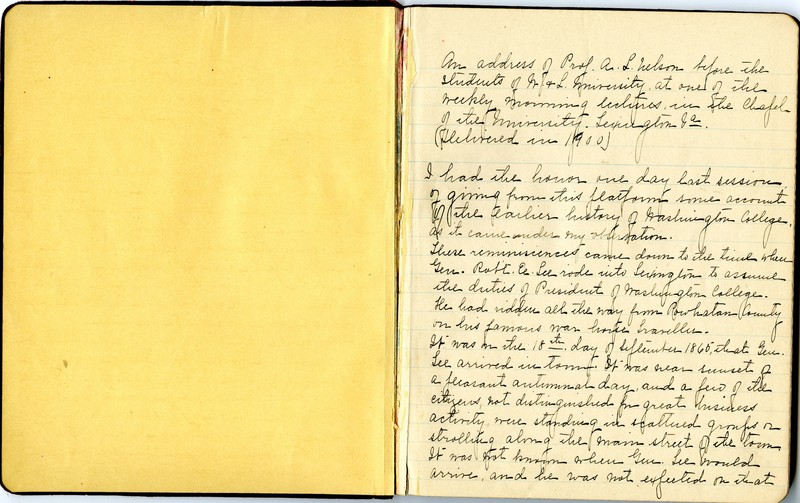 An address of Prof. A. L. Nelson before the
students of W. & L. University, at one of the
weekly morning lectures, in the Chapel
of the University. Lexington Va.
(Delivered in 1900)
I had the honor one day last session,
of giving from this platform some account
of the earlier history of Washington College,
as it came under my observation.
These reminiscences came down to the time when
Gen. Robt. E. Lee rode into Lexington to assume
the duties of President of Washington College.
He had ridden all the way from Powhatan County
on his famous war horse Traveller.
It was on the 18th. day of September 1865, that Gen.
Lee arrived in town. It was near sunset of
a pleasant autumnal day, and a few of the
citizens, not distinguished for great business
activity, were standing in scattered groups or
strolling along the main street of the town
It was not known when Gen. Lee would
arrive, and he was not expected on that